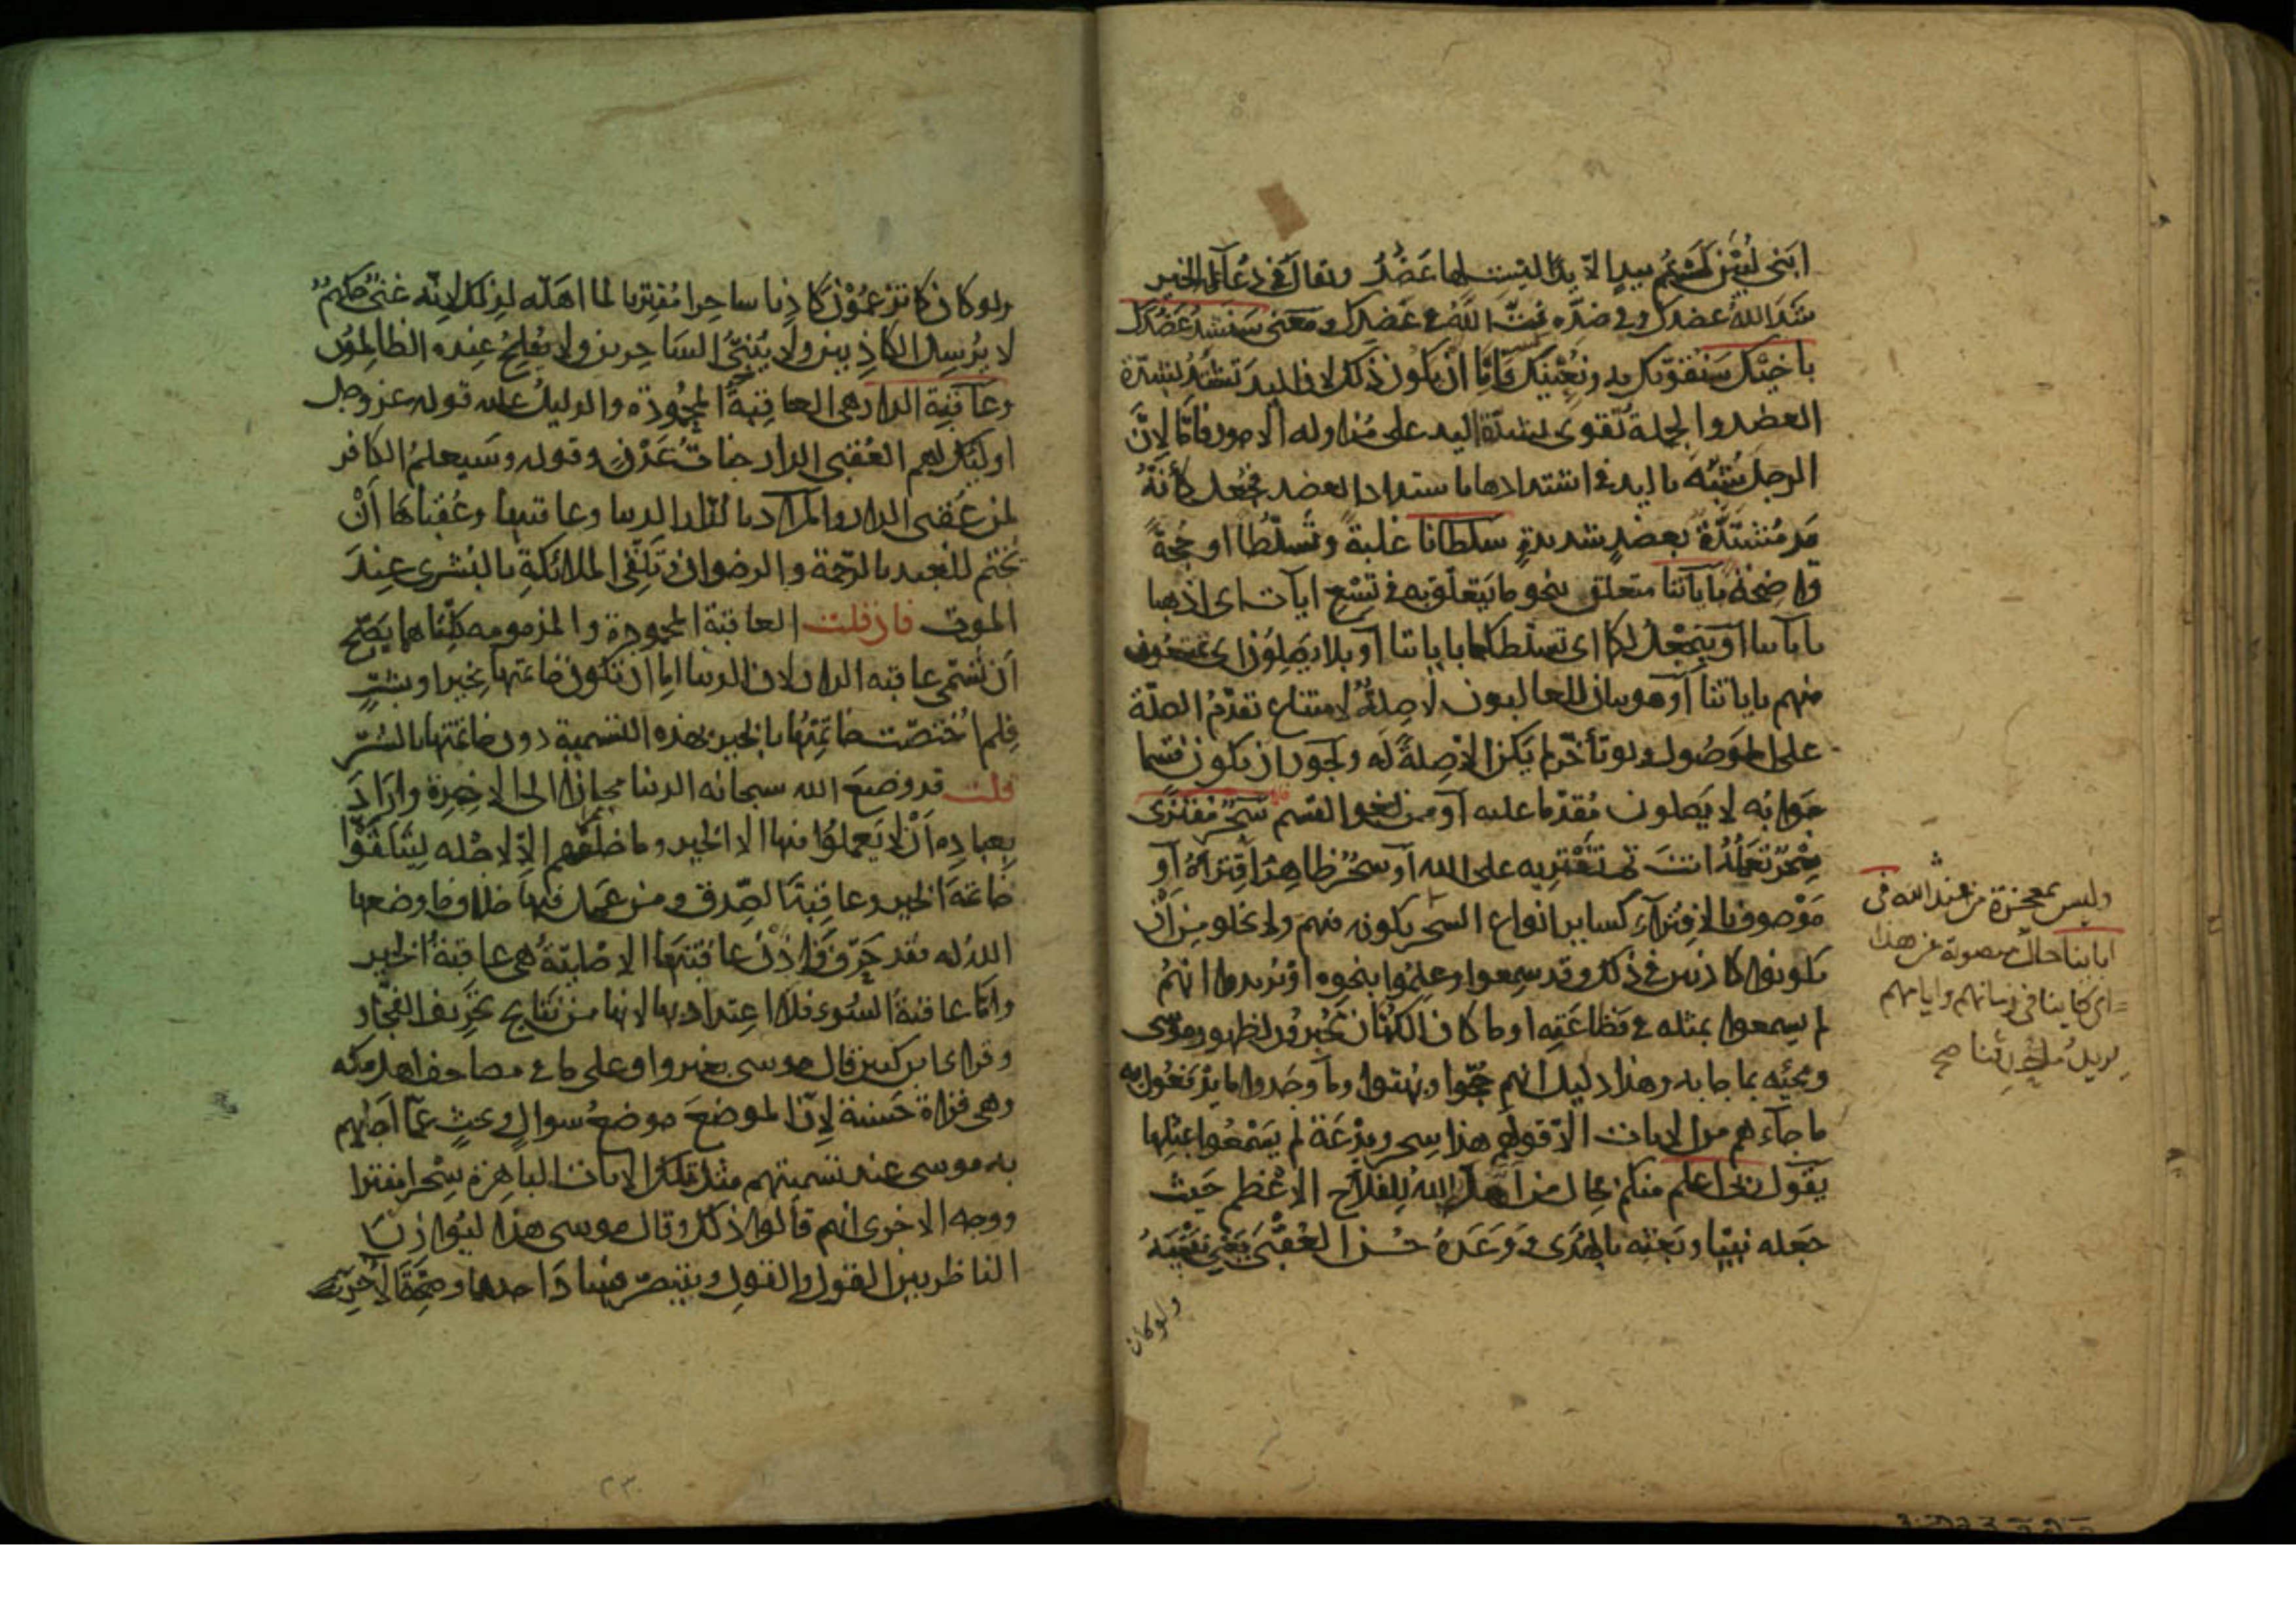 ابنى لبينى لستم بيد الا يدا ليست لها عضد ويقال فى دعاء الخير
شد الله عضدك وفى ضده فت الله فى عضدك ومعنى سنشد عضدك
باخيك سنقويك به ونعينك فاما ان يكون ذلك لان اليد تشتد لشدة
العضد والجملة تقوى بشدة اليد على مزاوله الامور واما لان
الرجل شبه باليد فى اشتدادها باشتداد العضد فجعل كأنه
يد مشتدة بعضد شديدة سلطانا غلبة وتسلطا او حجة
واضحة باياتنا متعلق بنحو ما يتعلق به فى تسع ايات اى اذهبا
باياتنا او بنجعل لكما اى نسلطكما باياتنا او بلا يصلون اى تمتنعون
منهم باياتنا او هو بيان للغالبون لا صلة لامتناع تقدم الصلة
على الموصول ولو تأخر لم يكن الا صلة له ويجوز ان يكون قسما
جوابه لا يصلون مقدما عليه او من لغو القسم سحر مفترى
سحر تعمله انت ثم تفتريه على الله او سحر ظاهر افتراؤه او
موصوف بالافتراء كساير انواع السحر يكونه فهم ولا يخلو من ان
يكونوا كاذبين فى ذلك وقد سمعوا وعلموا بنحوه او يريدوا انهم
لم يسمعوا بمثله فى فظاعته او ما كان الكهان يخبرون بظهور موسى
ومجيئه بما جا به وهذا دليل انهم حجوا وبهتوا وما وجدوا ما يدفعون به
ما جاءهم من الايات الا قولهم هذا سحر وبدعة لم يسمعوا بمثلها
يقول ربى اعلم منكم بحال من اهله الله للفلاح الاعظم حيث
جعله نبيا وبعثه بالهدى ووعده حسن العقبى يعنى نفسه
ولو كان
وليس بمعجزة من عند الله فى
ابائنا حال منصوبة عن هذا
اى كاينا فى زمانهم وايامهم
يريد ما حدثنا صح
ولو كان كما تزعمون كاذبا ساحرا مفتريا لما اهله لذلك لانه غنى حكيم
لا يرسل الكاذبين ولا ينبئ الساحرين ولا يفلح عنده الظالمون
وعاقبة الدار هى العاقبة المحمودة والدليل عليه قوله عز وجل
اوليك لهم العقبى الدار جنات عدن وقوله وسيعلم الكافر
لمن عقبى الدار والمراد بالدار الدنيا وعاقبتها وعقباها ان
يختم للعبد بالرحمة والرضوان وتلقى الملائكة بالبشرى عند
الموت فان قلت العاقبة المحمودة والمذمومه كلتاهما يصح
ان تسمى عاقبه الدار لان الدنيا اما ان تكون خاتمتها بخير او بشر
فلم اختصت خاتمتها بالخير بهذه التسمية دون خاتمتها بالشر
قلت قد وضع الله سبحانه الدنيا مجازا الى الاخرة واراد
بعباده ان لا يعملوا فيها الا الخير وما خلقهم الا لاجله ليتلقوا
خاتمة الخير وعاقبة الصدق ومن عمل فيها خلاف ما وضعها
الله له فقد حرف فاذن عاقبتها الاصلية هى عاقبة الخير
واما عاقبة السوء فلا اعتداد بها لانها من نتايج تحريف الفجار
وقرا ابن كثير قال موسى بغير واو على ما فى مصاحف اهل مكه
وهى قراة حسنة لان الموضع موضع سوال وبحث عما اجابهم
به موسى عند تسميتهم مثل تلك الايات الباهرة سحرا مفترا
ووجه الاخرى انهم قالوا ذلك وقال موسى هذا ليوازن
الناظر بين القول والقول ويتبصر فساد احدهما وصحة الاخر
٢٣٠